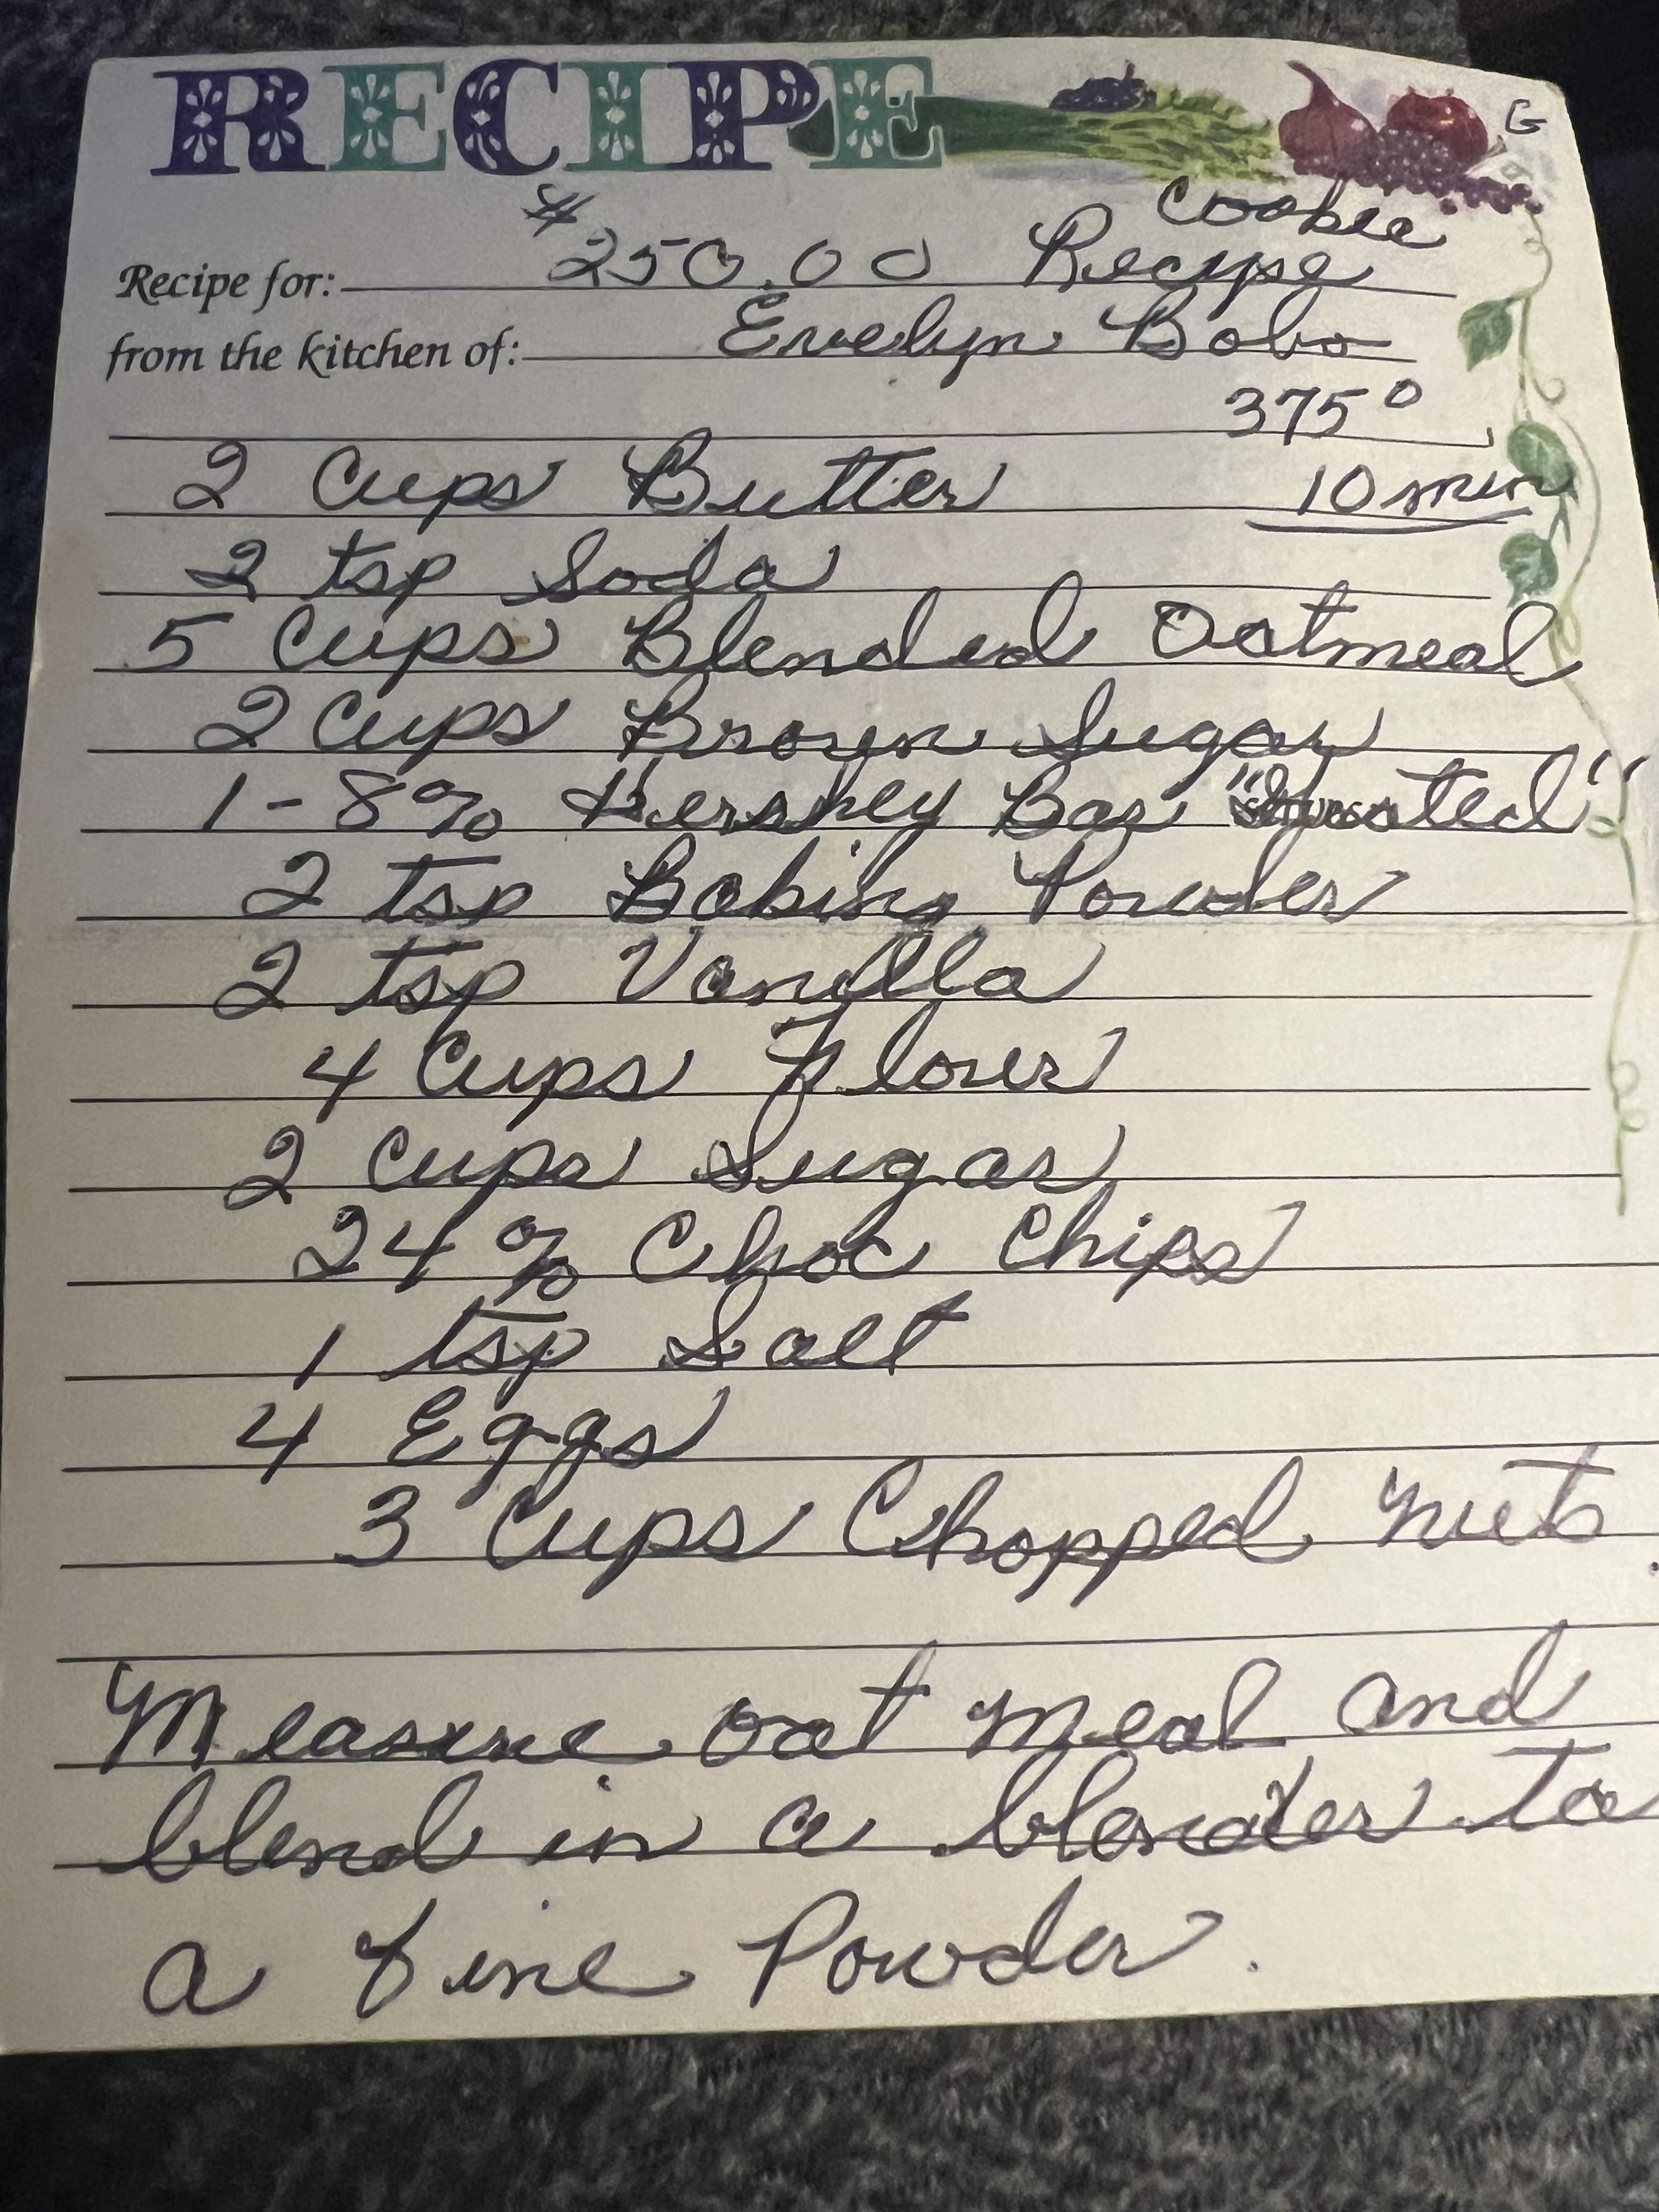 RECIPE
G
Cookie
Recipe for: $250.00 Recipe
from the kitchen of: Evelyn Bobo
375°
2 Cups Butter 10 min
2 tsp Soda
5 Cups Blended Oatmeal
2 Cups Brown Sugar
1-8% Hershey Bar "Grated"
2 tsp Baking Powder
2 tsp Vanilla
4 Cups Flour
2 Cups Sugar
24 % Choc Chips
1 tsp Salt
4 Eggs
3 Cups Chopped Nuts.
Measure oat meal and
blend in a blender to
a fine Powder.